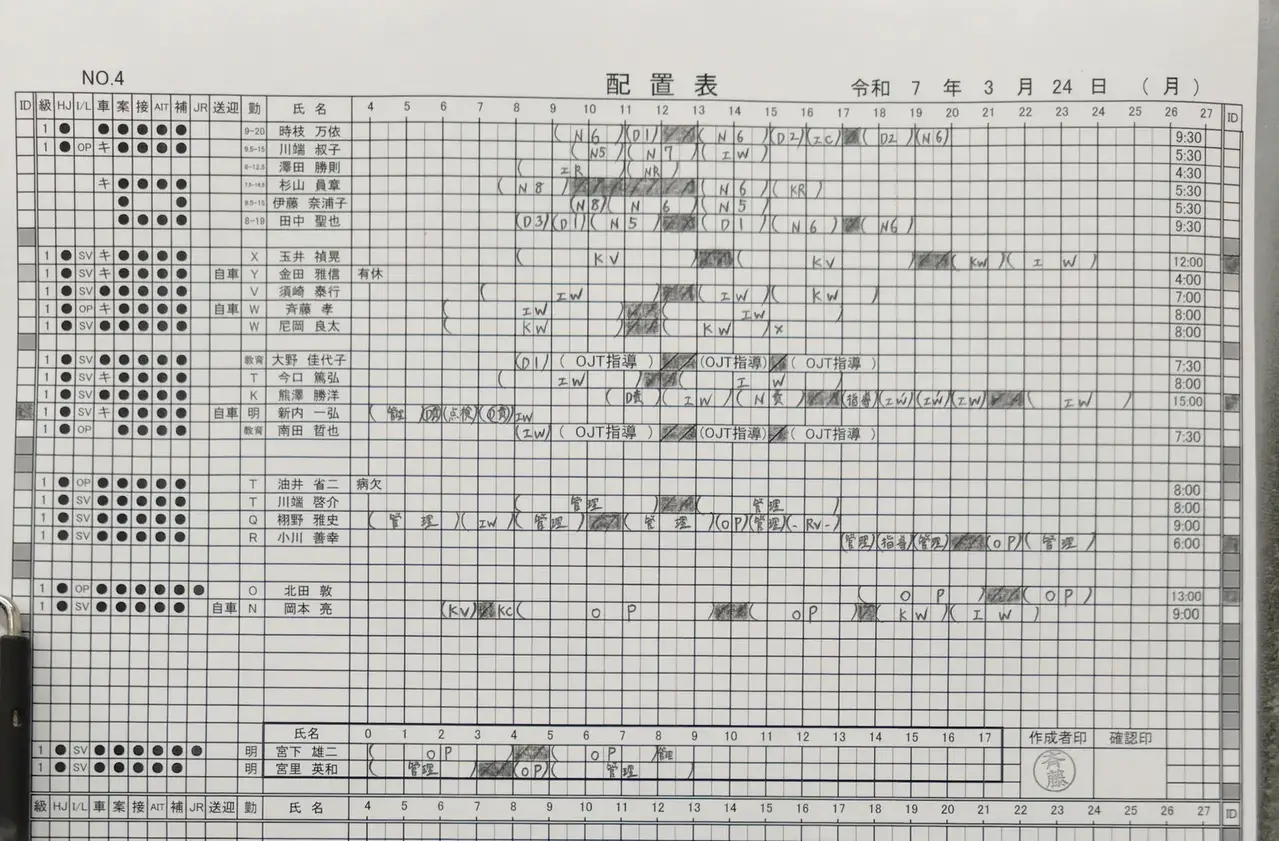 NO.4 配置表 令和 7 年 3 月 24 日 （ 月 ）
ID 級 HJ I/L 車 案 接 AIT 補 JR 送迎 勤 氏 名 4 5 6 7 8 9 10 11 12 13 14 15 16 17 18 19 20 21 22 23 24 25 26 27 ID
1 ● ● ● ● ● ● 9-20 時枝 万依 ( N6 )(D1) ( N6 )(D2)(IC) ( D2 )(N6) 9:30
1 ● OP キ ● ● ● ● 9.5-15 川端 叔子 ( N5 )( N7 )( IW ) 5:30
澤田 勝則 ( IR )( NR ) 4:30
キ ● ● ● ● 杉山 員章 ( N8 ) ( N6 )( KR ) 5:30
● ● 9.5-15 伊藤 奈浦子 (N8)( N 6 )( N5 ) 5:30
● ● ● ● 8-19 田中 聖也 (D3)(D1)( N5 ) ( D1 )( N6 ) ( N6 ) 9:30
1 ● SV キ ● ● ● ● X 玉井 禎晃 ( KV ) ( KV ) ( KW )( I W ) 12:00
1 ● SV キ ● ● ● ● 自車 Y 金田 雅信 有休 4:00
1 ● SV ● ● ● ● ● V 須崎 泰行 ( IW ) ( IW )( KW ) 7:00
1 ● OP キ ● ● ● ● 自車 W 斉藤 孝 ( IW ) ( IW ) 8:00
1 ● SV ● ● ● ● ● W 尼岡 良太 ( KW ) ( KW )× 8:00
1 ● SV ● ● ● ● ● 教育 大野 佳代子 (D1) ( OJT指導 ) (OJT指導) ( OJT指導 ) 7:30
1 ● SV キ ● ● ● ● T 今口 篤弘 ( IW ) ( I W ) 8:00
1 ● SV ● ● ● ● ● K 熊澤 勝洋 ( D責 )( IW )( N責 ) (指導)(IW)(IW)(IW) ( IW ) 15:00
1 ● SV キ ● ● ● ● 自車 明 新内 一弘 ( 管理 ) (点検) IW
1 ● OP ● ● ● ● 教育 南田 哲也 (IW) ( OJT指導 ) (OJT指導) ( OJT指導 ) 7:30
1 ● OP ● ● ● ● ● T 油井 省二 病欠 8:00
1 ● SV ● ● ● ● ● T 川端 啓介 ( 管理 ) ( 管理 ) 8:00
1 ● SV ● ● ● ● ● Q 栩野 雅史 ( 管理 )( IW )( 管理 ) ( 管理 )(OP)(管理)(-RV-) 9:00
1 ● SV ● ● ● ● ● R 小川 善幸 (管理)(指導)(管理) (OP)( 管理 ) 6:00
1 ● OP ● ● ● ● ● ● O 北田 敦 ( O P ) ( OP ) 13:00
1 ● SV ● ● ● ● ● 自車 N 岡本 亮 (KV) KC( O P ) ( OP ) ( KW )( I W ) 9:00
氏名 0 1 2 3 4 5 6 7 8 9 10 11 12 13 14 15 16 17 作成者印 確認印
1 ● SV ● ● ● ● ● ● 明 宮下 雄二 ( OP ) ( OP )管理
1 ● SV ● ● ● ● ● 明 宮里 英和 ( 管理 ) (OP)( 管理 ) 斉藤
級 HJ I/L 車 案 接 AIT 補 JR 送迎 勤 氏 名 4 5 6 7 8 9 10 11 12 13 14 15 16 17 18 19 20 21 22 23 24 25 26 27 ID